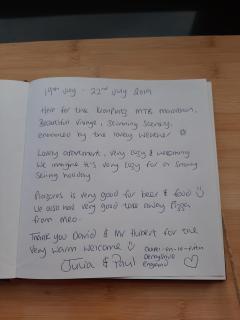 19th July - 22nd July 2019
Here for the MTB marathon.
Beautiful village, stunning scenery,
enhanced by the lovely weather
Lovely apartment, very cosy & welcoming
We imagine it's very cosy for a snowy
skiing holiday
is very good for beer & food
We also had very good take away pizza
from
Thank you David & Mr Hubert for the
very warm welcome
Julia & Paul
Derbyshire
England